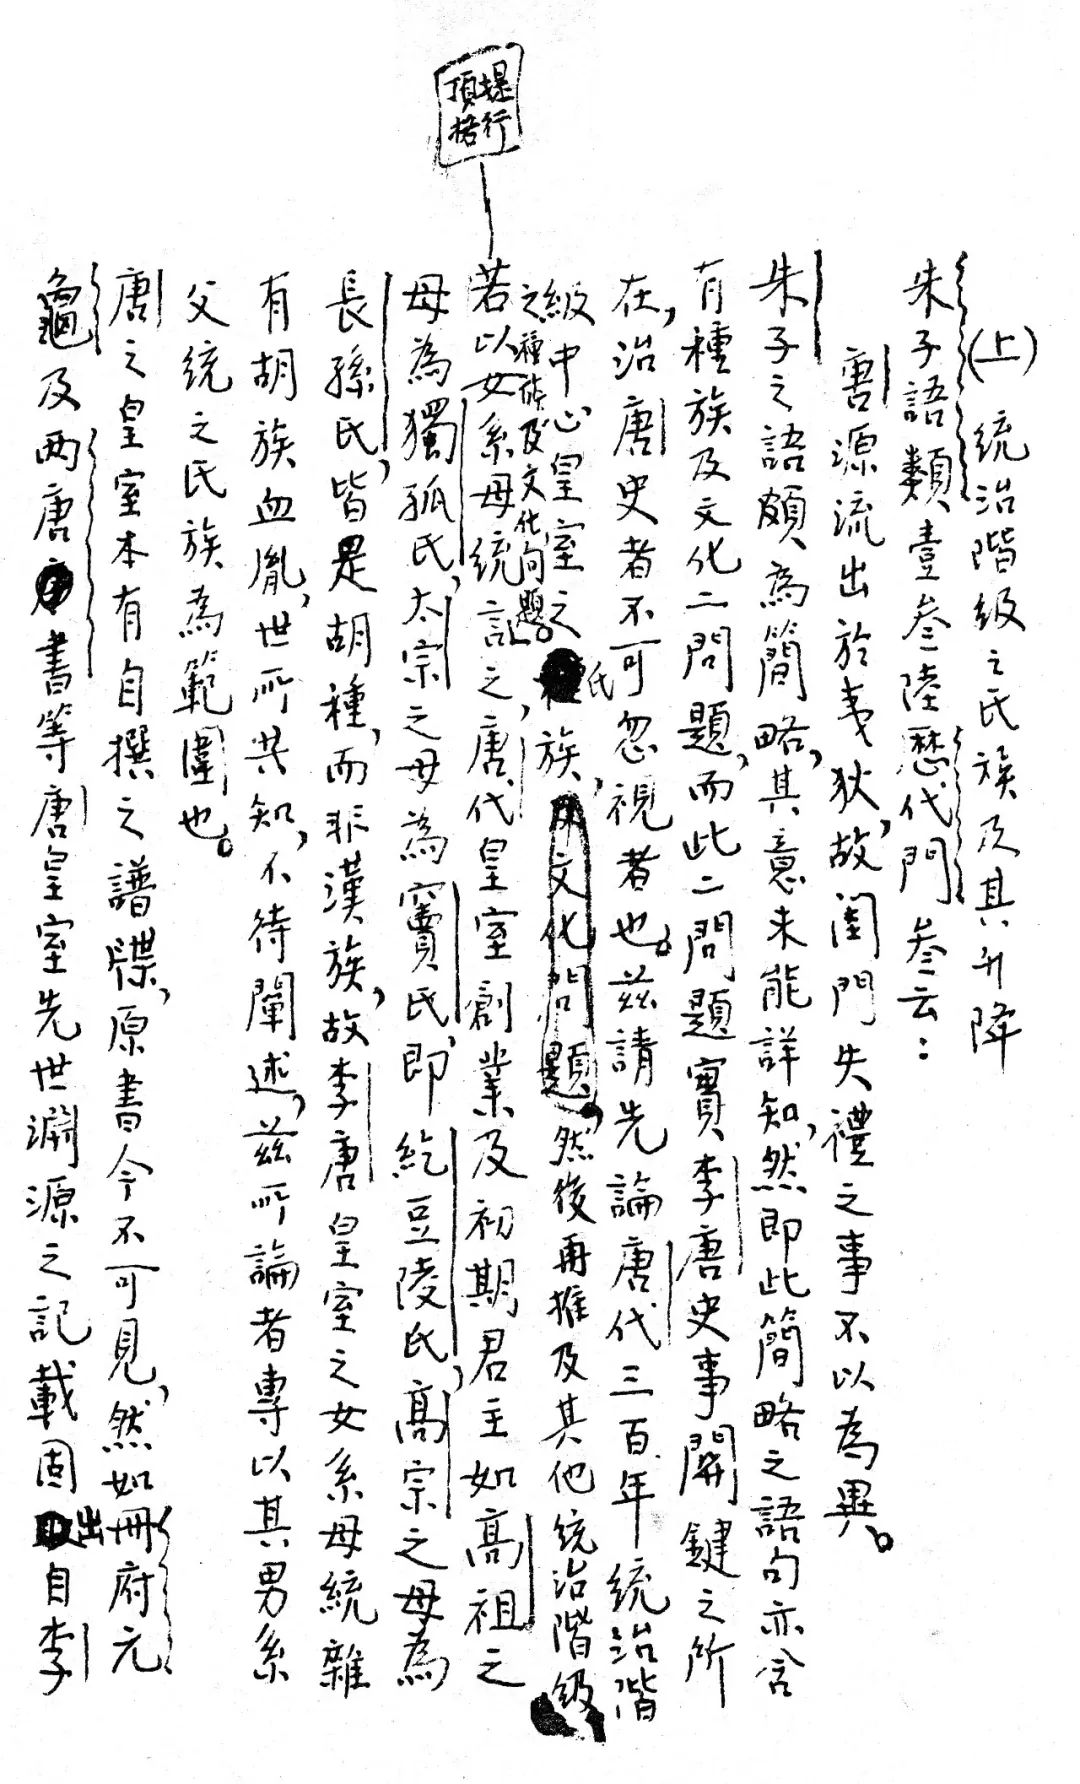 (上) 統治階級之氏族及其升降
朱子語類壹叁陸歷代門叁云：
唐源流出於夷狄，故閨門失禮之事不以為異。
朱子之語頗為簡略，其意未能詳知，然即此簡略之語句亦含
有種族及文化二問題，而此二問題實李唐史事關鍵之所
在，治唐史者不可忽視者也。茲請先論唐代三百年統治階
級中心皇室之氏族，文化問題，然後再推及其他統治階級
之種族及文化問題。
提行
頂格
若以女系母統言之，唐代皇室創業及初期君主如高祖之
母為獨孤氏，太宗之母為竇氏，即紇豆陵氏，高宗之母為
長孫氏，皆是胡種，而非漢族，故李唐皇室之女系母統雜
有胡族血胤，世所共知，不待闡述，茲所論者專以其男系
父統之氏族為範圍也。
唐之皇室本有自撰之譜牒，原書今不可見，然如冊府元
龜及两唐書等唐皇室先世淵源之記載固出自李